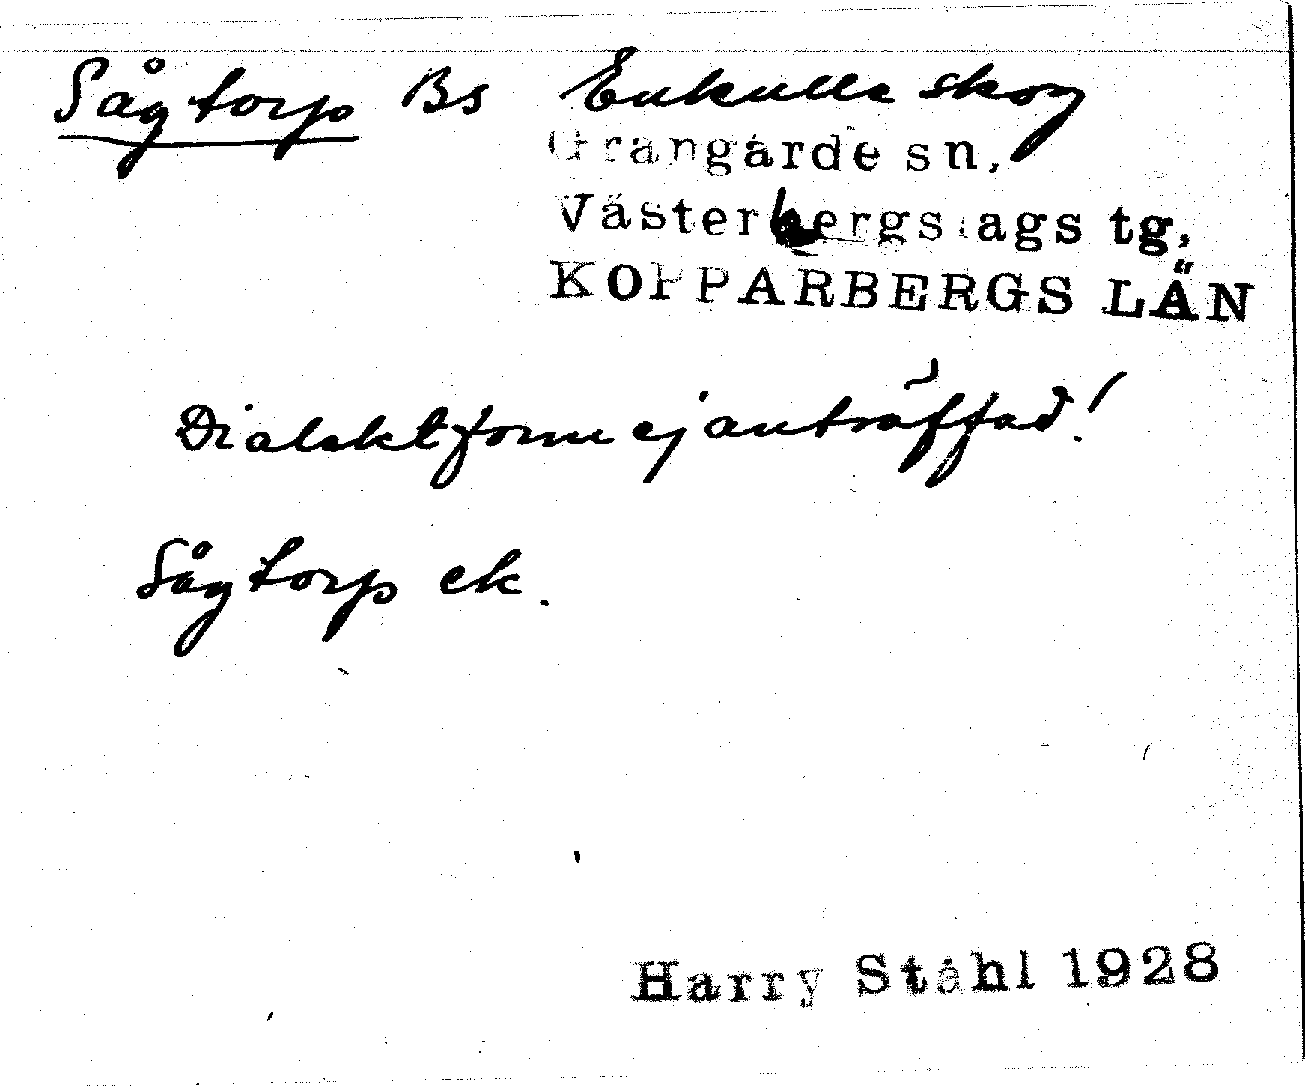 Sågtorp Bs Enkulla skog
Grangärde sn,
Västerbergslags tg,
KOPPARBERGS LÄN
Dialektform ej anträffad!
Sågtorp ek.
Harry Ståhl 1928